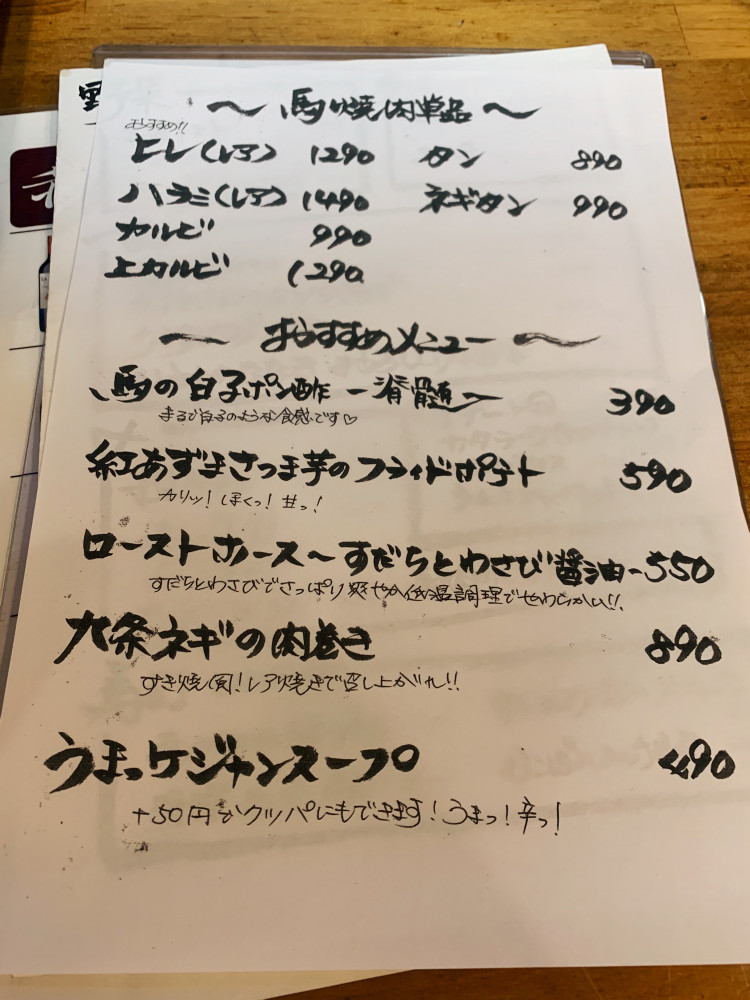 〜 馬焼肉単品 〜
おすすめ!!
ヒレ(レア) 1290 タン 890
ハラミ(レア) 1490 ネギタン 990
カルビ 990
上カルビ 1290
〜 おすすめメニュー 〜
馬の白子ポン酢 ー脊髄〜 390
まるで白子のような食感です♡
紅あずまさつま芋のフライドポテト 590
カリッ! ほくっ! 甘っ!
ローストホース〜すだちとわさび醤油- 550
すだちとわさびでさっぱり爽やか低温調理でやわらかい!!
九条ネギの肉巻き 890
すき焼風! レア焼きで召し上がれ!!
うまっケジャンスープ 490
+50円でクッパにもできます! うまっ! 辛っ!